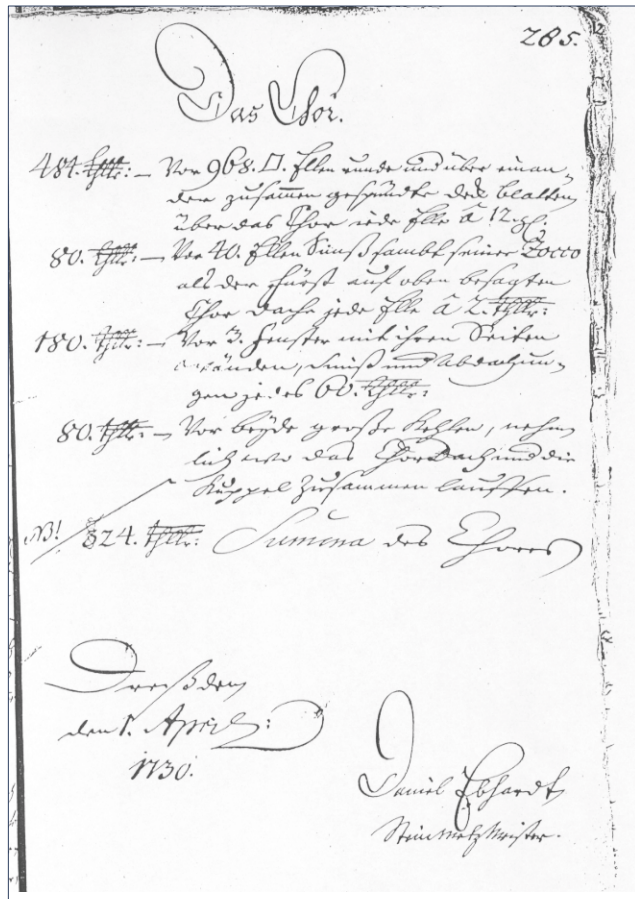 285.
Das Chor.
484. thlr: — Vor 968. □. Ellen runde und über einan-
der zusammen gespündte deck blatten
über das Chor iede Elle â 12. gl.
80. thlr: — Vor 40. Ellen Simß sambt seiner Zocco
als der Fürst auf oben besagten
Chor dache jede Elle â 2. thlr:
180. thlr: — Vor 3. Fenster mit ihren Seiten
wänden, Simß und Abdachun-
gen jedes 60. thlr:
80. thlr: — Vor beyde große Kehlen, nehm
lich wo das Chor Dach und die
Kuppel zusammen lauffen.
NB! 824. thlr: Summa des Chores
Dreßden
den 1. April:
1730.
Daniel Ebhardt
Steinmetz Meister.